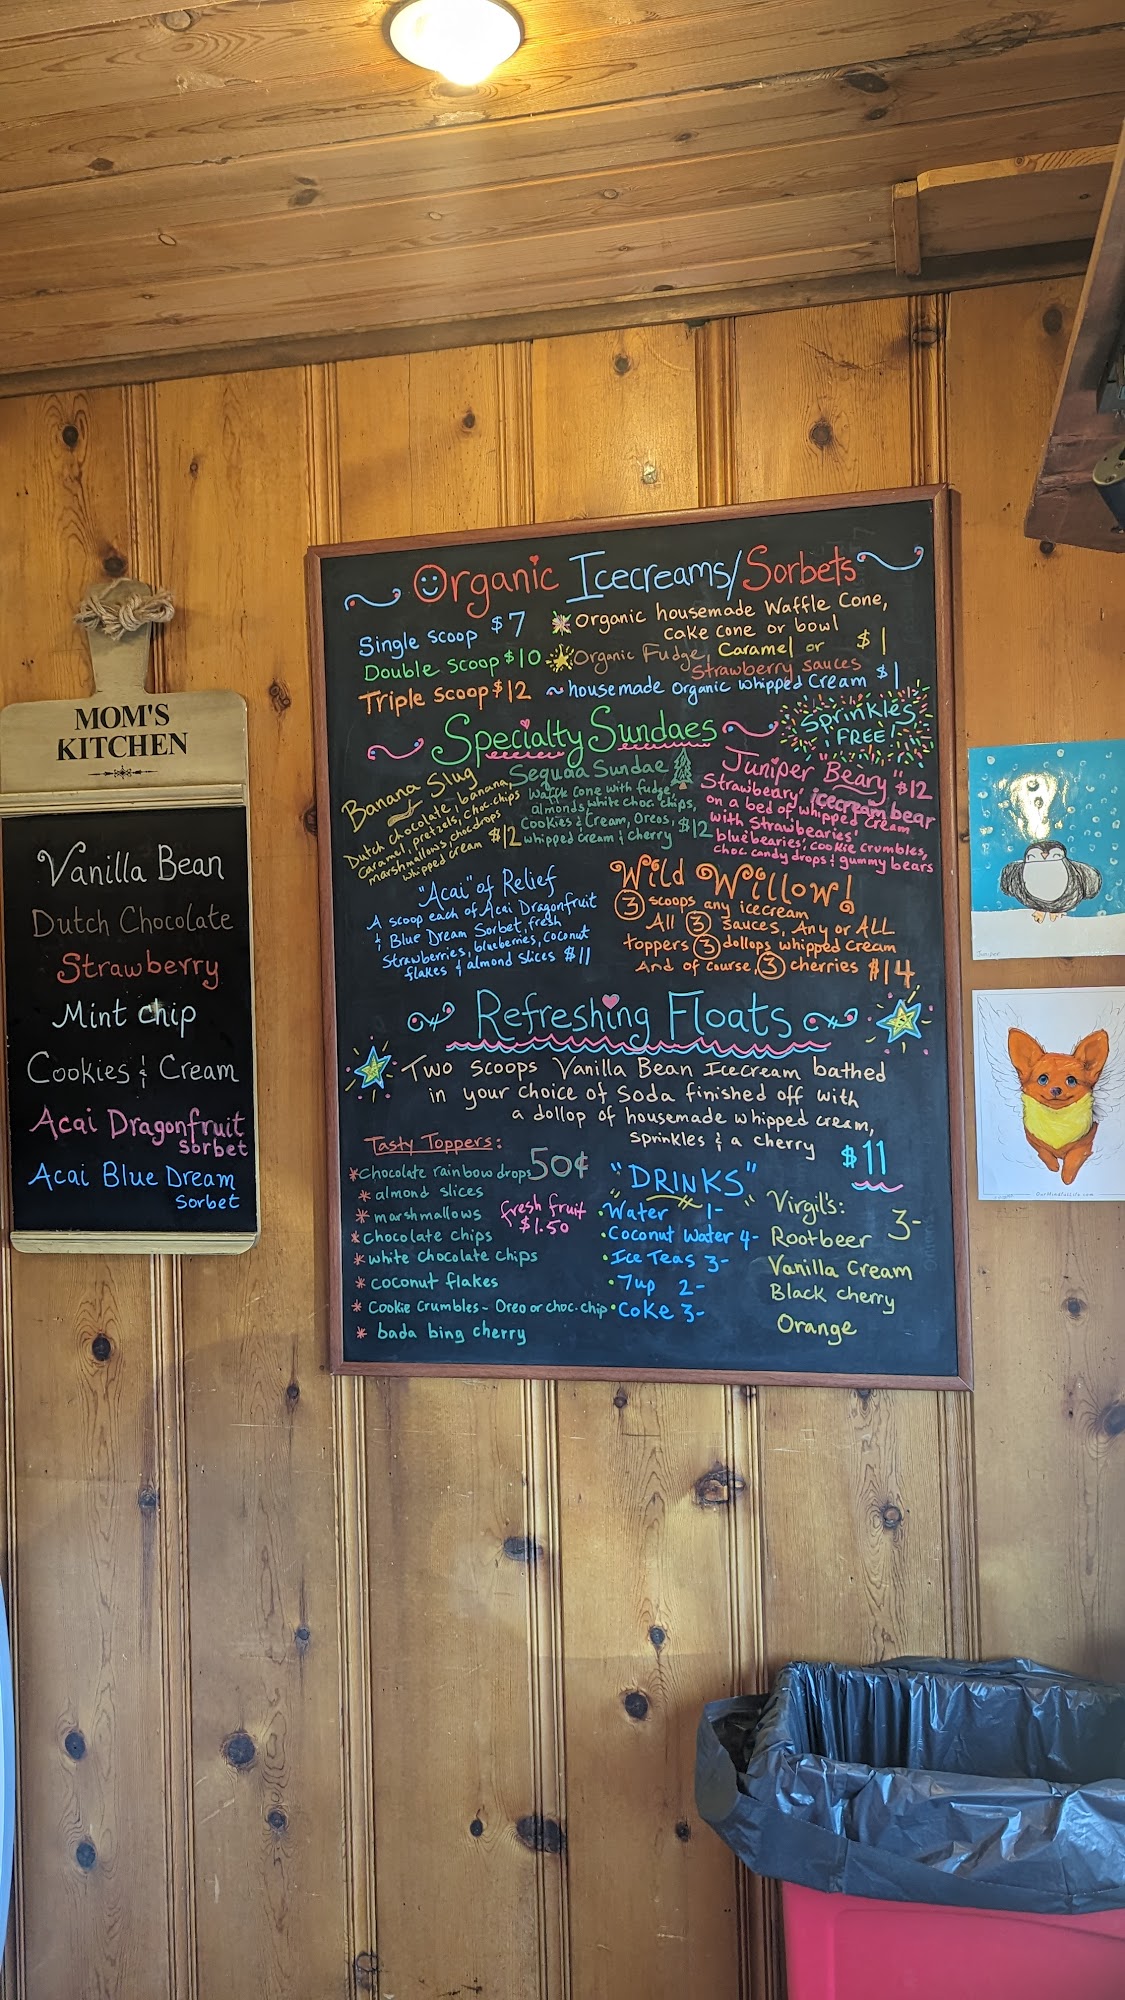 MOM'S
KITCHEN
Vanilla Bean
Dutch Chocolate
Strawberry
Mint chip
Cookies & Cream
Acai Dragonfruit
Sorbet
Acai Blue Dream
Sorbet
Organic Icecreams/Sorbets
Single scoop $7
Double scoop $10
Triple scoop $12
Organic housemade Waffle Cone,
cake cone or bowl
Organic Fudge, Caramel or $1
Strawberry sauces
~housemade organic whipped cream $1
Sprinkles
FREE!
Specialty Sundaes
Banana Slug
Dutch chocolate, banana,
caramel, pretzels, choc.chips
marshmallows, chocdrops
whipped cream $12
Sequoia Sundae
Waffle cone with fudge,
almonds, white choc chips,
Cookies & Cream, Oreos, $12
whipped cream & cherry
Juniper "Beary" $12
Strawbeary' icecream bear
on a bed of whipped cream
with Strawbearies'
bluebearies', cookie crumbles,
choc candy drops & gummy bears
"Acai" of Relief
A scoop each of Acai Dragonfruit
& Blue Dream Sorbet, fresh
Strawberries, blueberries, coconut
flakes & almond slices $11
Wild Willow!
3 scoops any icecream
All 3 sauces, Any or ALL
toppers 3 dollops whipped cream
And of course, 3 cherries $14
Refreshing Floats
Two scoops Vanilla Bean Icecream bathed
in your choice of Soda finished off with
a dollop of housemade whipped cream,
sprinkles & a cherry $11
Tasty Toppers:
*Chocolate rainbow drops 50¢
*almond slices
*marshmallows
*chocolate chips
*white chocolate chips
*coconut flakes
*Cookie Crumbles- Oreo or choc.chip
*bada bing cherry
fresh fruit
$1.50
"DRINKS"
•Water 1-
•Coconut Water 4-
•Ice Teas 3-
•7up 2-
•Coke 3-
Virgil's:
Rootbeer 3-
Vanilla Cream
Black cherry
Orange
Juniper
OurMindfulLife.com